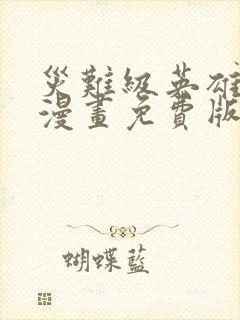 災難級英雄
漫畫免費版
蝴蝶藍